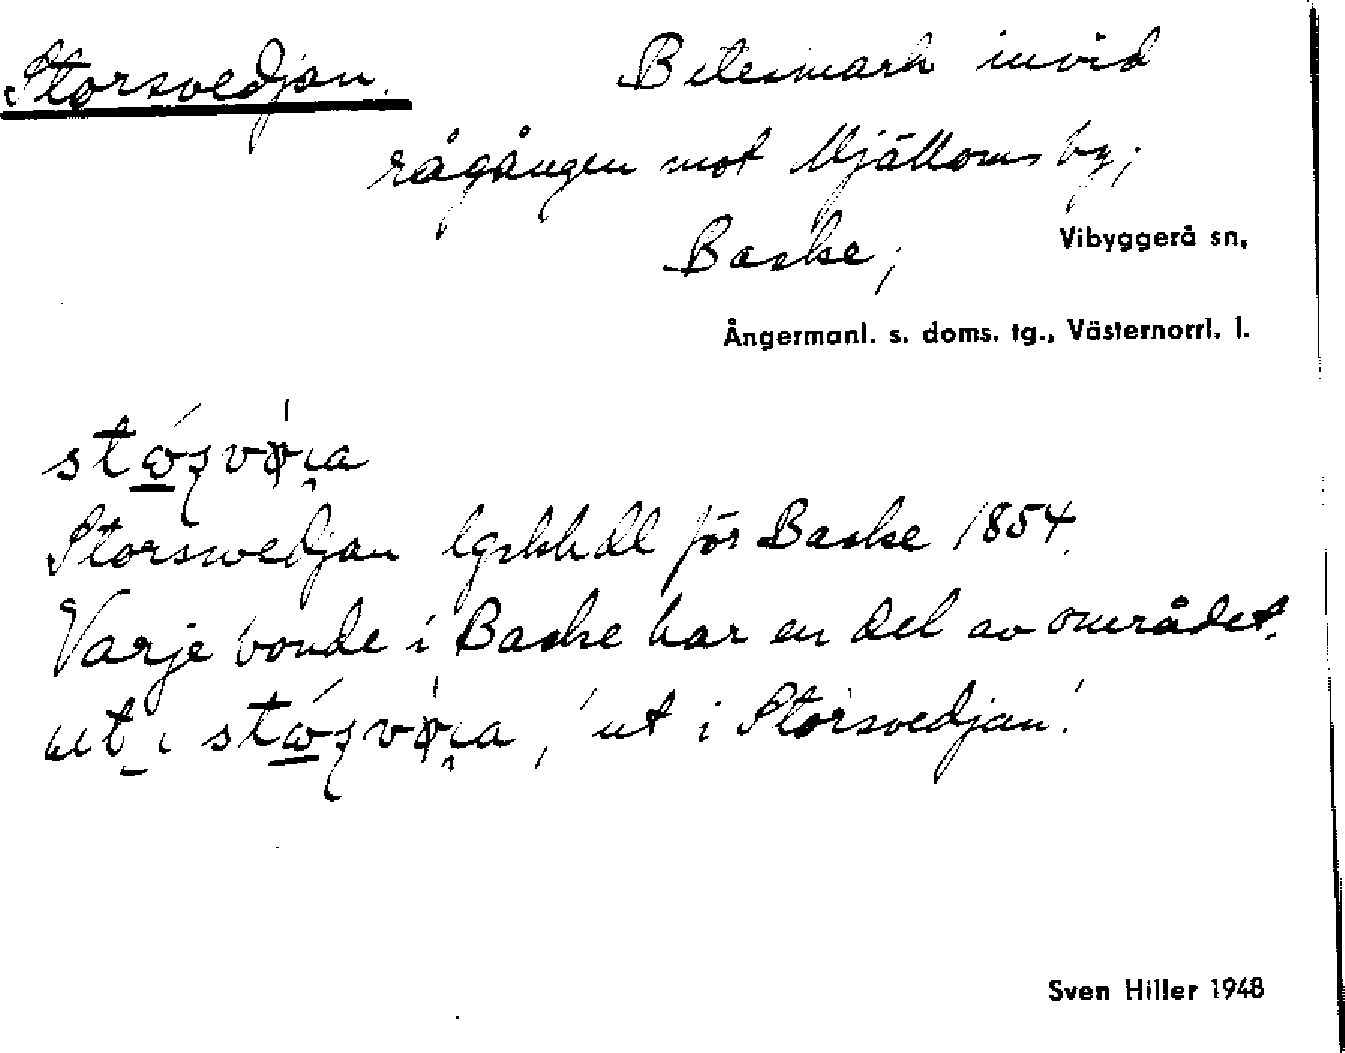 Storsvedjan. Betesmark invid
rågången mot Mjälloms by;
Baske; Vibyggerå sn,
Ångermanl. s. doms. tg., Västernorrl. l.
Storswedjan lgskhdl för Baske 1854.
Varje bonde i Baske har en del av området.
ut i 'ut i Storsvedjan'.
Sven Hiller 1948